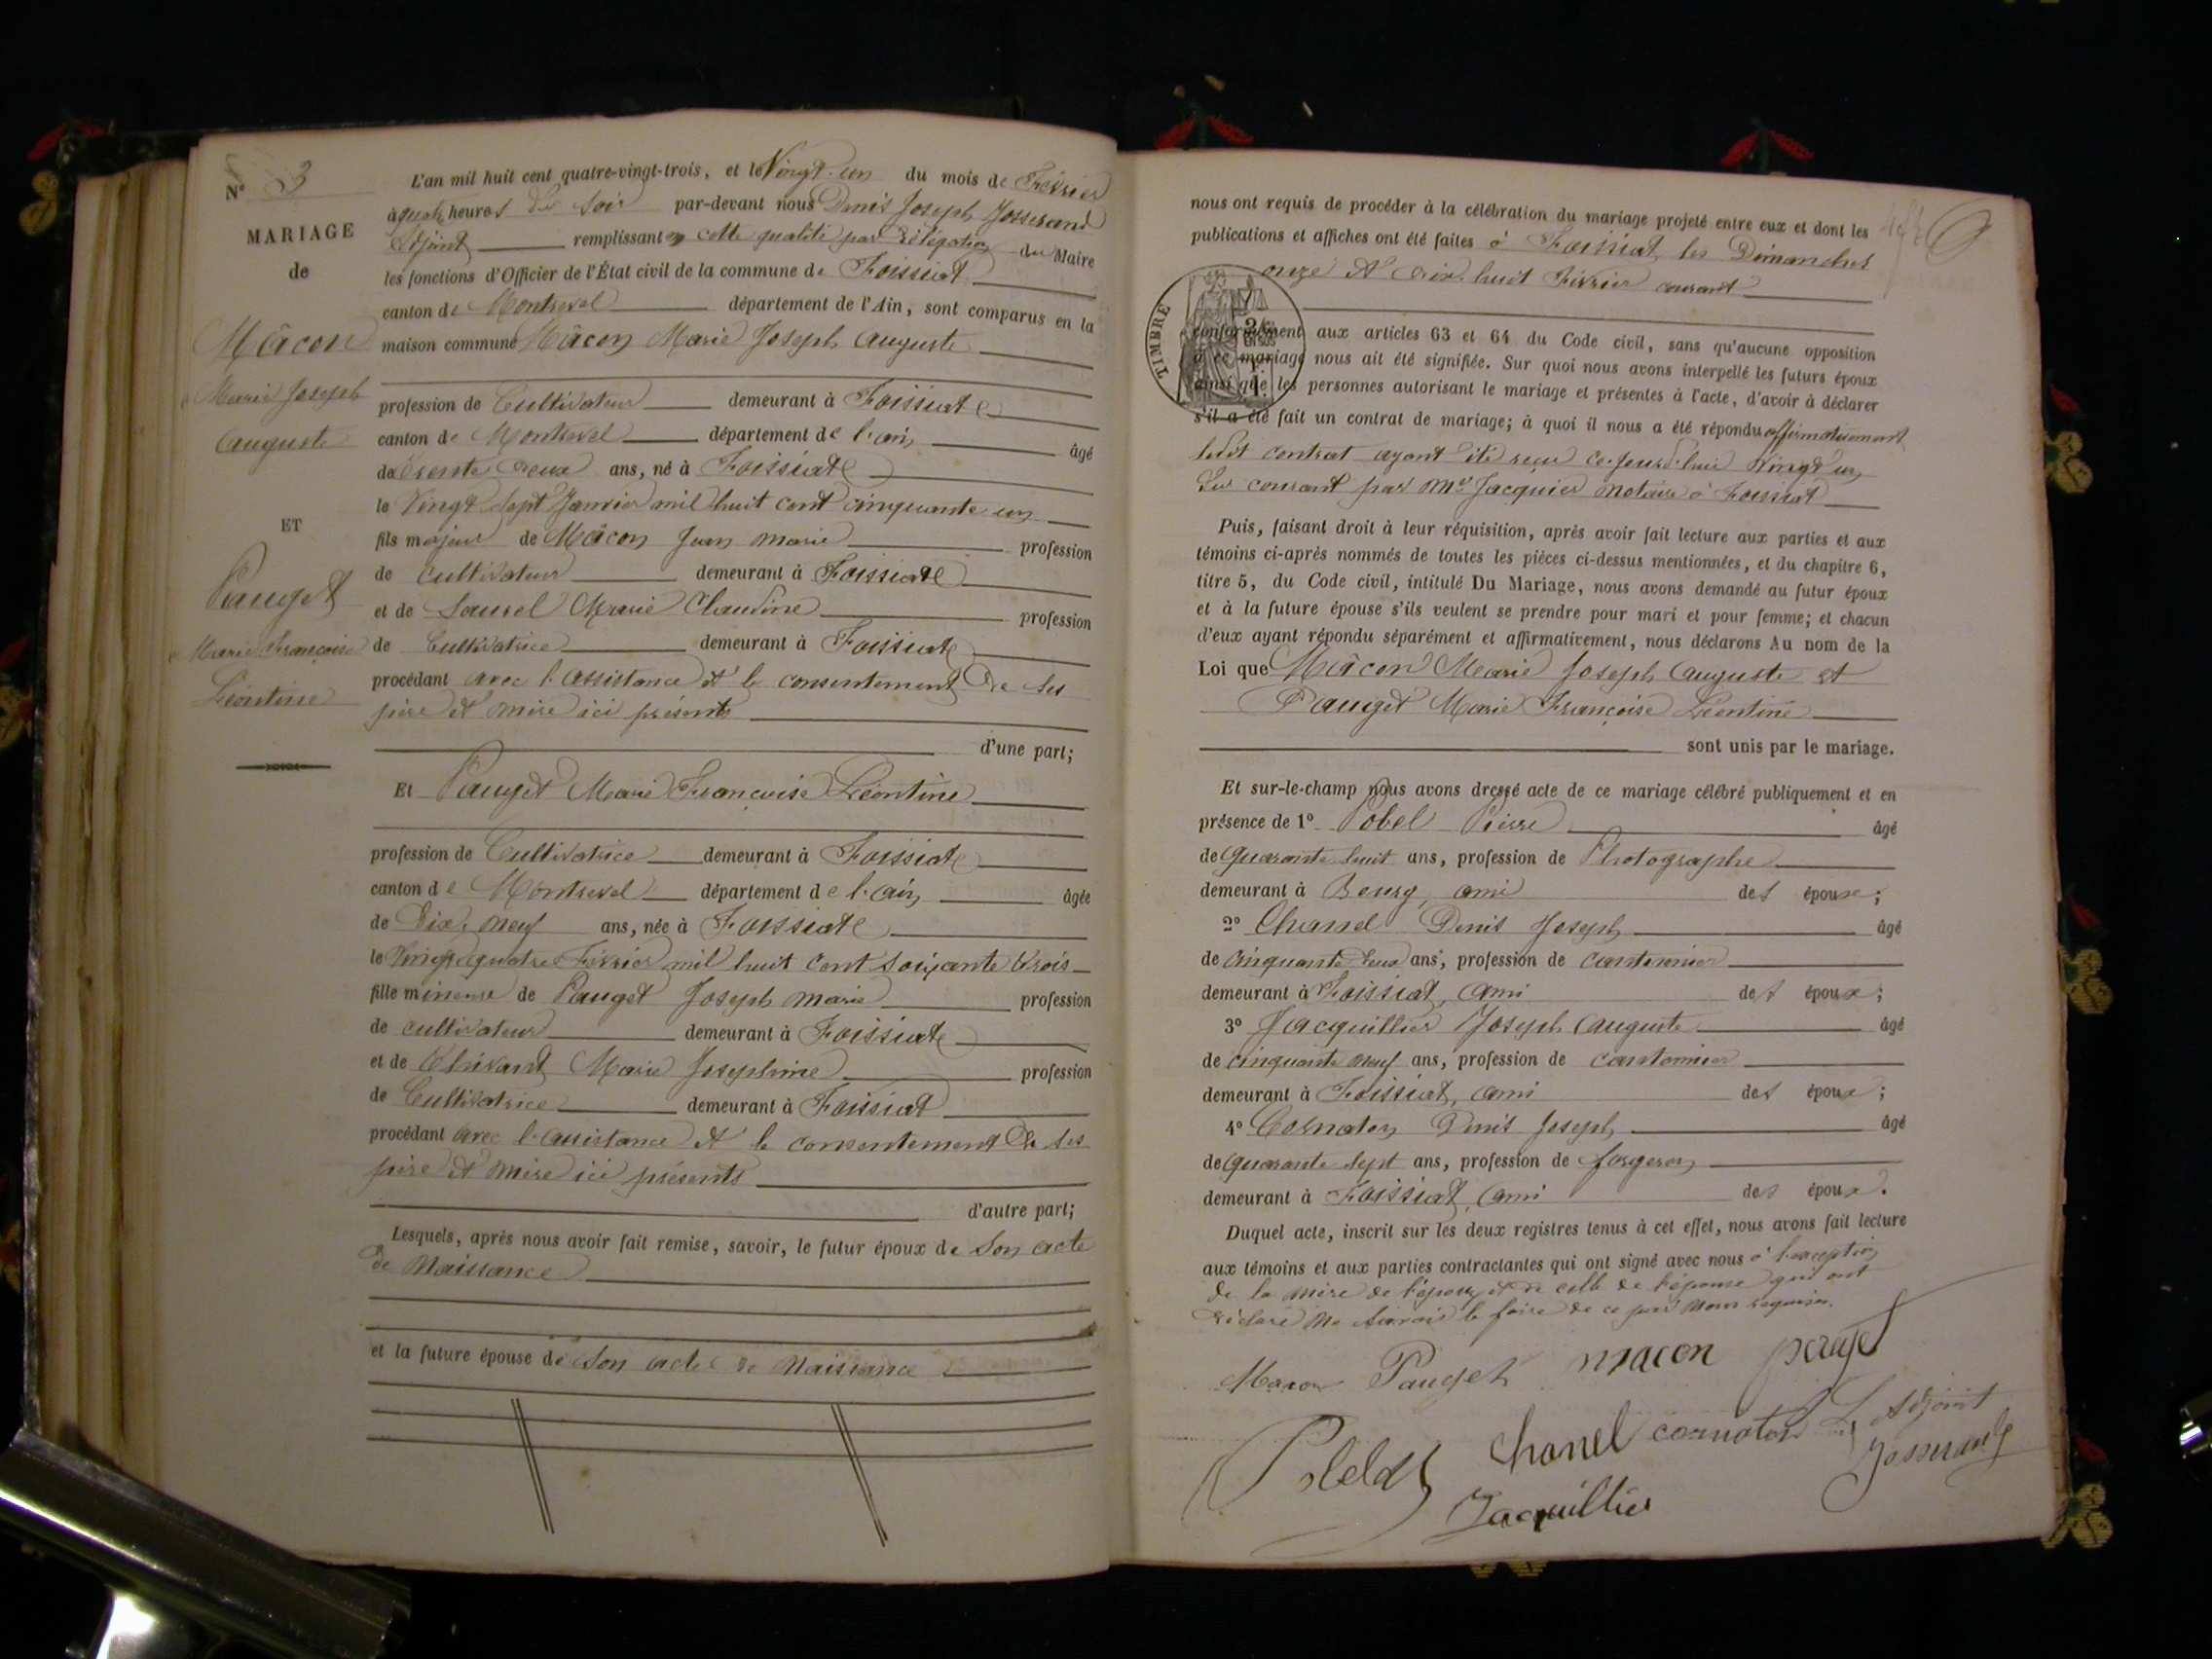 N° 3
MARIAGE
de
Mâcon
Marie Joseph
Auguste
ET
Pauget
Marie Françoise
Léontine
L'an mil huit cent quatre-vingt-trois, et le Vingt-un du mois de Février
à quatre heures du soir par-devant nous Denis Joseph Josserand
Adjoint remplissant en cette qualité par délégation du Maire
les fonctions d'Officier de l'État civil de la commune de Foissiat
canton de Montrevel département de l'Ain, sont comparus en la
maison commune Mâcon Marie Joseph Auguste
profession de Cultivateur demeurant à Foissiat
canton de Montrevel département de l'ain âgé
de trente deux ans, né à Foissiat
le Vingt sept Janvier mil huit cent cinquante un
fils majeur de Mâcon Jean Marie profession
de cultivateur demeurant à Foissiat
et de Saurel Marie Claudine profession
de Cultivatrice demeurant à Foissiat
procédant avec l'assistance et le consentement de ses
père et mère ici présents
d'une part;
Et Pauget Marie Françoise Léontine
profession de Cultivatrice demeurant à Foissiat
canton de Montrevel département de l'ain âgée
de Dix-neuf ans, née à Foissiat
le Vingt quatre Février mil huit cent soixante trois
fille mineure de Pauget Joseph Marie profession
de cultivateur demeurant à Foissiat
et de Marie Josephine profession
de Cultivatrice demeurant à Foissiat
procédant avec l'assistance et le consentement de ses
père et mère ici présents
d'autre part;
Lesquels, après nous avoir fait remise, savoir, le futur époux de son acte
de Naissance
et la future épouse de son acte de Naissance
nous ont requis de procéder à la célébration du mariage projeté entre eux et dont les
publications et affiches ont été faites à Foissiat les Dimanches
onze et dix-huit Février courant
TIMBRE
conformément aux articles 63 et 64 du Code civil, sans qu'aucune opposition
à ce mariage nous ait été signifiée. Sur quoi nous avons interpellé les futurs époux
ainsi que les personnes autorisant le mariage et présentes à l'acte, d'avoir à déclarer
s'il a été fait un contrat de mariage; à quoi il nous a été répondu affirmativement
ledit contrat ayant été reçu ce-jourd'hui vingt un
du courant par Me Jacquier notaire à Foissiat
Puis, faisant droit à leur réquisition, après avoir fait lecture aux parties et aux
témoins ci-après nommés de toutes les pièces ci-dessus mentionnées, et du chapitre 6,
titre 5, du Code civil, intitulé Du Mariage, nous avons demandé au futur époux
et à la future épouse s'ils veulent se prendre pour mari et pour femme; et chacun
d'eux ayant répondu séparément et affirmativement, nous déclarons Au nom de la
Loi que Mâcon Marie Joseph Auguste et
Pauget Marie Françoise Léontine
sont unis par le mariage.
Et sur-le-champ nous avons dressé acte de ce mariage célébré publiquement et en
présence de 1° Pobel Pierre âgé
de quarante huit ans, profession de Photographe
demeurant à Bourg, ami des époux;
2° Chanel Denis Joseph âgé
de cinquante deux ans, profession de cantonnier
demeurant à Foissiat, ami des époux;
3° Jacquillier Joseph Auguste âgé
de cinquante neuf ans, profession de cantonnier
demeurant à Foissiat, ami des époux;
4° Cornaton Denis Joseph âgé
de quarante sept ans, profession de forgeron
demeurant à Foissiat, ami des époux.
Duquel acte, inscrit sur les deux registres tenus à cet effet, nous avons fait lecture
aux témoins et aux parties contractantes qui ont signé avec nous à l'exception
de la mère de l'époux et de celle de l'épouse qui ont
déclaré ne savoir le faire de ce par nous requises.
Macon Pauget macon pauget
Chanel cornaton L'adjoint
Jacquillier Josserand